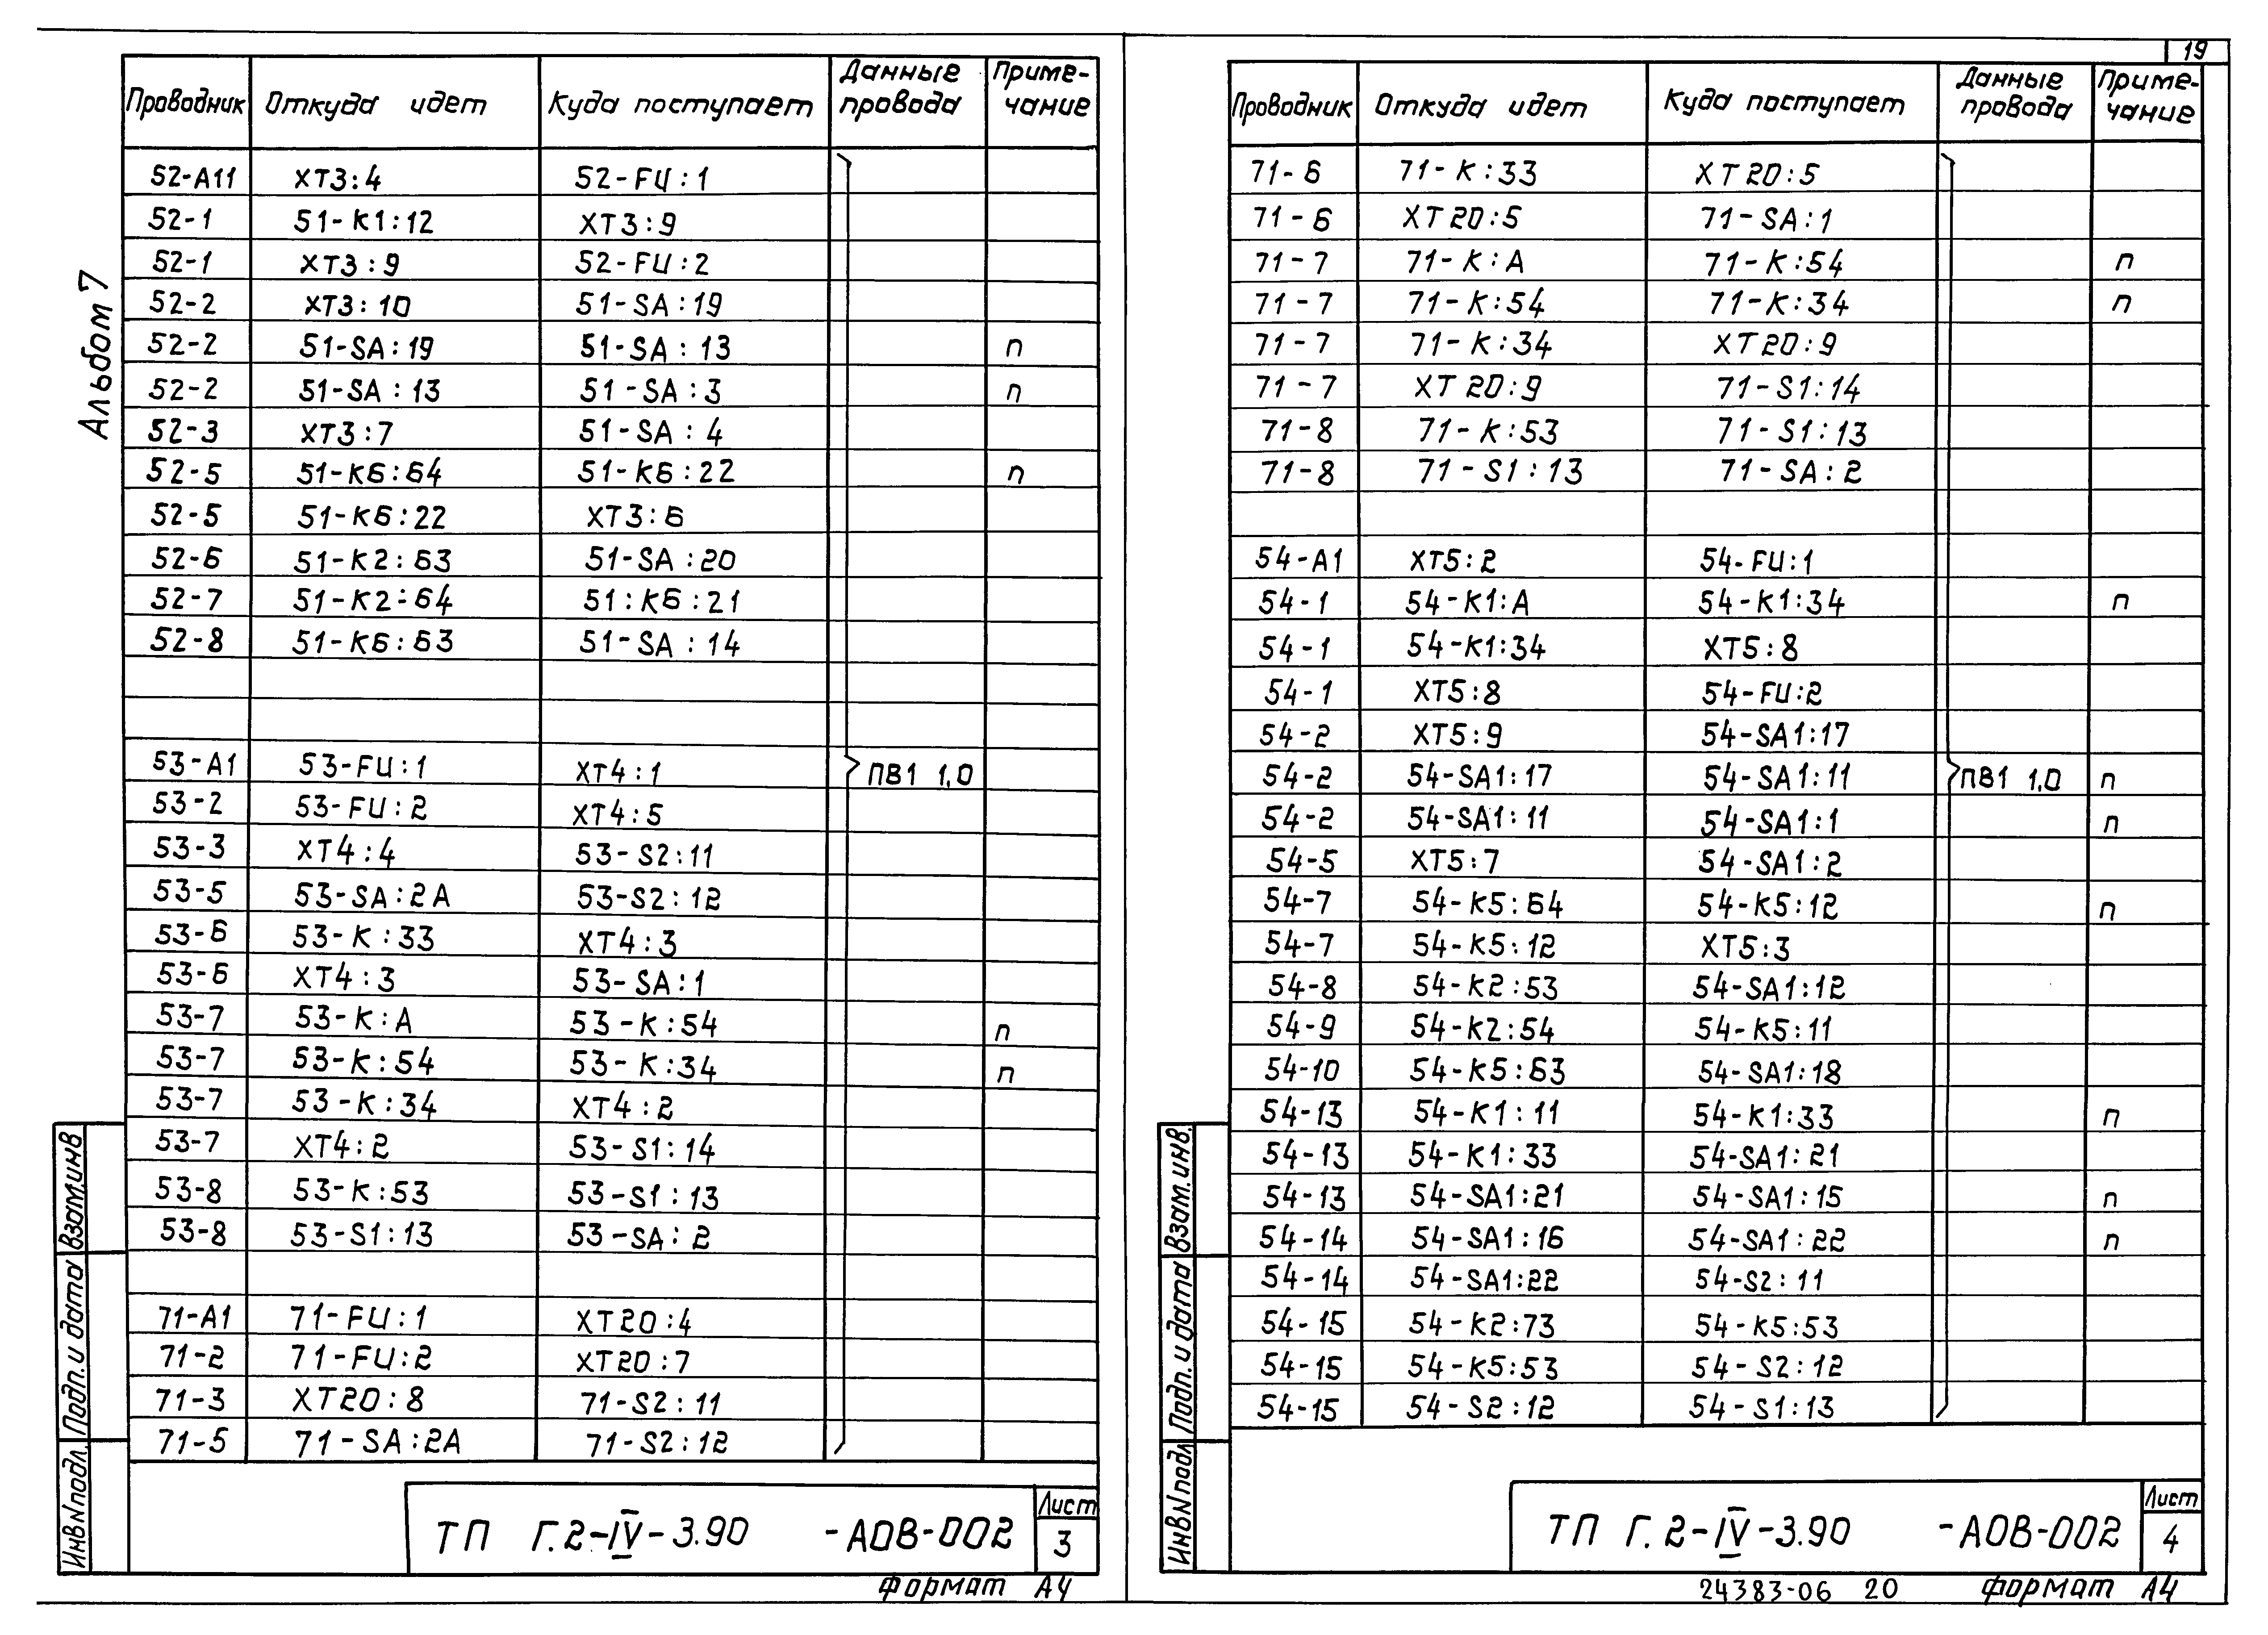 Альбом 7
Проводник Откуда идет Куда поступает Данные провода Приме-чание
52-А11 ХТ3:4 52-FU:1
52-1 51-К1:12 ХТ3:9
52-1 ХТ3:9 52-FU:2
52-2 ХТ3:10 51-SA:19
52-2 51-SA:19 51-SA:13 п
52-2 51-SA:13 51-SA:3 п
52-3 ХТ3:7 51-SA:4
52-5 51-К6:64 51-К6:22 п
52-5 51-К6:22 ХТ3:6
52-6 51-К2:63 51-SA:20
52-7 51-К2:64 51:К6:21
52-8 51-К6:63 51-SA:14
53-А1 53-FU:1 ХТ4:1 ПВ1 1,0
53-2 53-FU:2 ХТ4:5
53-3 ХТ4:4 53-S2:11
53-5 53-SA:2А 53-S2:12
53-6 53-К:33 ХТ4:3
53-6 ХТ4:3 53-SA:1
53-7 53-К:А 53-К:54 п
53-7 53-К:54 53-К:34 п
53-7 53-К:34 ХТ4:2
53-7 ХТ4:2 53-S1:14
53-8 53-К:53 53-S1:13
53-8 53-S1:13 53-SA:2
71-А1 71-FU:1 ХТ20:4
71-2 71-FU:2 ХТ20:7
71-3 ХТ20:8 71-S2:11
71-5 71-SA:2А 71-S2:12
Взам.инв
Подп. и дата
Инв N подл.
ТП Г.2-IV-3.90 -АОВ-002
Лист
3
Формат А4
19
Проводник Откуда идет Куда поступает Данные провода Приме-чание
71-6 71-К:33 ХТ20:5
71-6 ХТ20:5 71-SA:1
71-7 71-К:А 71-К:54 п
71-7 71-К:54 71-К:34 п
71-7 71-К:34 ХТ20:9
71-7 ХТ20:9 71-S1:14
71-8 71-К:53 71-S1:13
71-8 71-S1:13 71-SA:2
54-А1 ХТ5:2 54-FU:1
54-1 54-К1:А 54-К1:34 п
54-1 54-К1:34 ХТ5:8
54-1 ХТ5:8 54-FU:2
54-2 ХТ5:9 54-SA1:17
54-2 54-SA1:17 54-SA1:11 ПВ1 1,0 п
54-2 54-SA1:11 54-SA1:1 п
54-5 ХТ5:7 54-SA1:2
54-7 54-К5:64 54-К5:12 п
54-7 54-К5:12 ХТ5:3
54-8 54-К2:53 54-SA1:12
54-9 54-К2:54 54-К5:11
54-10 54-К5:63 54-SA1:18
54-13 54-К1:11 54-К1:33 п
54-13 54-К1:33 54-SA1:21
54-13 54-SA1:21 54-SA1:15 п
54-14 54-SA1:16 54-SA1:22 п
54-14 54-SA1:22 54-S2:11
54-15 54-К2:73 54-К5:53
54-15 54-К5:53 54-S2:12
54-15 54-S2:12 54-S1:13
Взам.инв.
Подп. и дата
Инв N подл
ТП Г.2-IV-3.90 -АОВ-002
Лист
4
24383-06 20 Формат А4